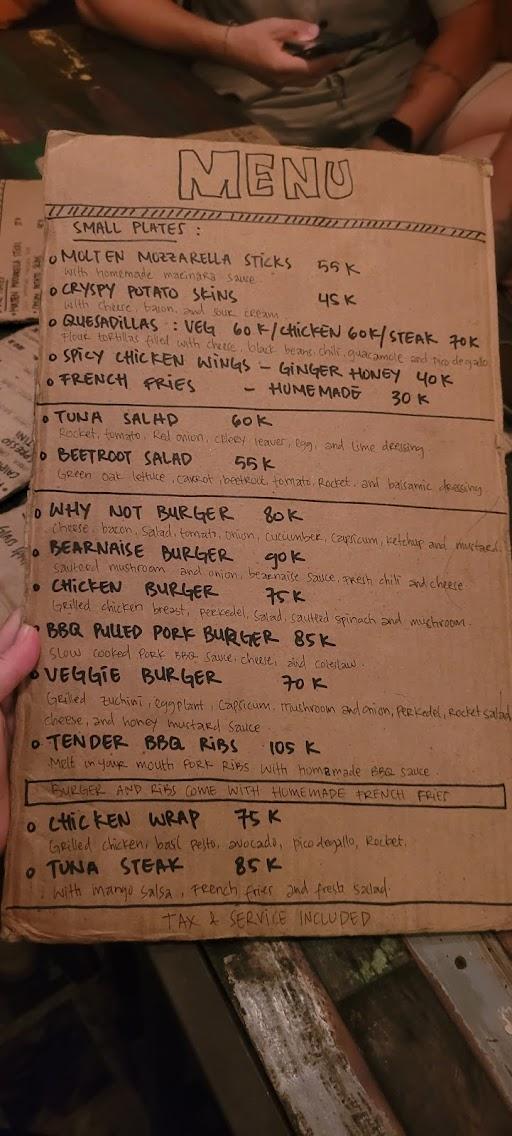 MENU
SMALL PLATES :
MOLTEN MOZZARELLA STICKS 55 K
with homemade marinara sauce
CRYSPY POTATO SKINS 45 K
with cheese, bacon, and sour cream
QUESADILLAS : VEG 60 K/CHICKEN 60K/STEAK 70K
Flour tortillas filled with cheese, black beans, chili, guacamole and pico degallo
SPICY CHICKEN WINGS - GINGER HONEY 40 K
FRENCH FRIES - HOMEMADE 30 K
TUNA SALAD 60 K
Rocket, tomato, Red onion, celery leaves, egg, and lime dressing
BEETROOT SALAD 55 K
Green oak lettuce, carrot, beetroot, tomato, Rocket, and balsamic dressing
WHY NOT BURGER 80 K
Cheese, bacon, Salad, tomato, onion, cucumber, capsicum, ketchup and mustard.
BEARNAISE BURGER 90 K
Sauteed mushroom and onion, bearnaise sauce, fresh chili and cheese.
CHICKEN BURGER 75 K
Grilled chicken breast, perkedel, salad, sauteed spinach and mushroom.
BBQ PULLED PORK BURGER 85K
Slow cooked PORK BBQ Sauce, cheese, and coleslaw.
VEGGIE BURGER 70 K
Grilled zuchini, eggplant, capsicum, mushroom and onion, perkedel, Rocket salad
cheese, and honey mustard sauce.
TENDER BBQ RIBS 105 K
Melt in your mouth PORK RIBS with homemade BBQ sauce.
BURGER AND RIBS COME WITH HOMEMADE FRENCH FRIES
CHICKEN WRAP 75 K
Grilled chicken, basil pesto, avocado, pico degallo, Rocket.
TUNA STEAK 85 K
with mango salsa, French fries and fresh salad.
TAX & SERVICE INCLUDED